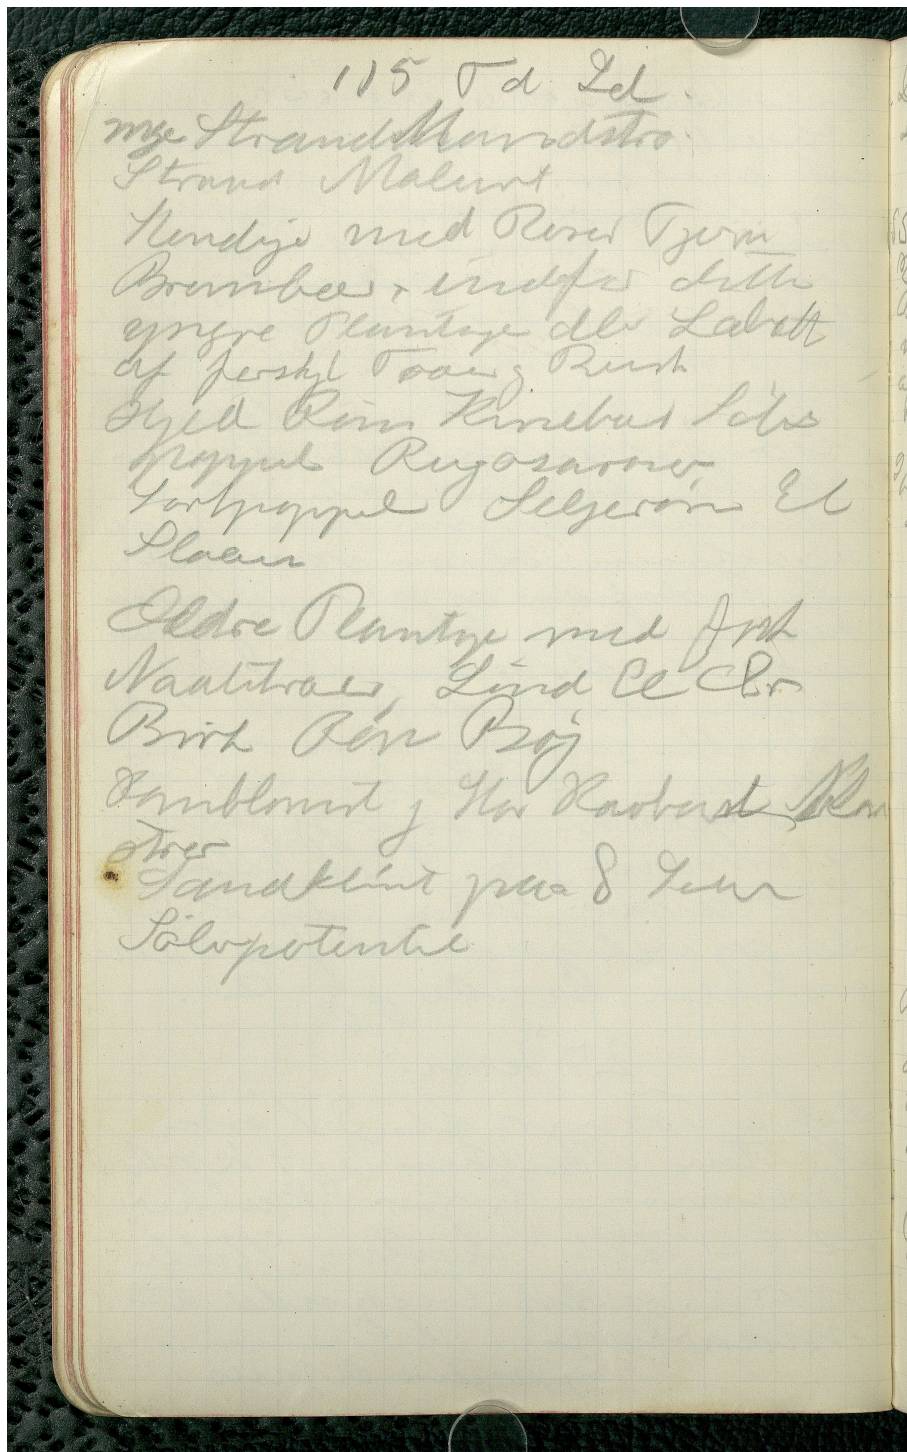 115 Td Ld.
mge Strand Mandstro.
Strand Malurt
Stendige med Roser Tjørn
Brombær, indfor dette
yngre Plantage dlv Labælt
af forskjl Træer g Busk
Hyld Røn Kinebus Sølv
poppel Rugosaroser
Sortpoppel Seljerøn El
Slaaen
Ældre Plantge med forsk
Naaletræer, Lind El Ær
Birk Røn Bøg
g Stor
Sandklint paa 8
Sølvpotentil